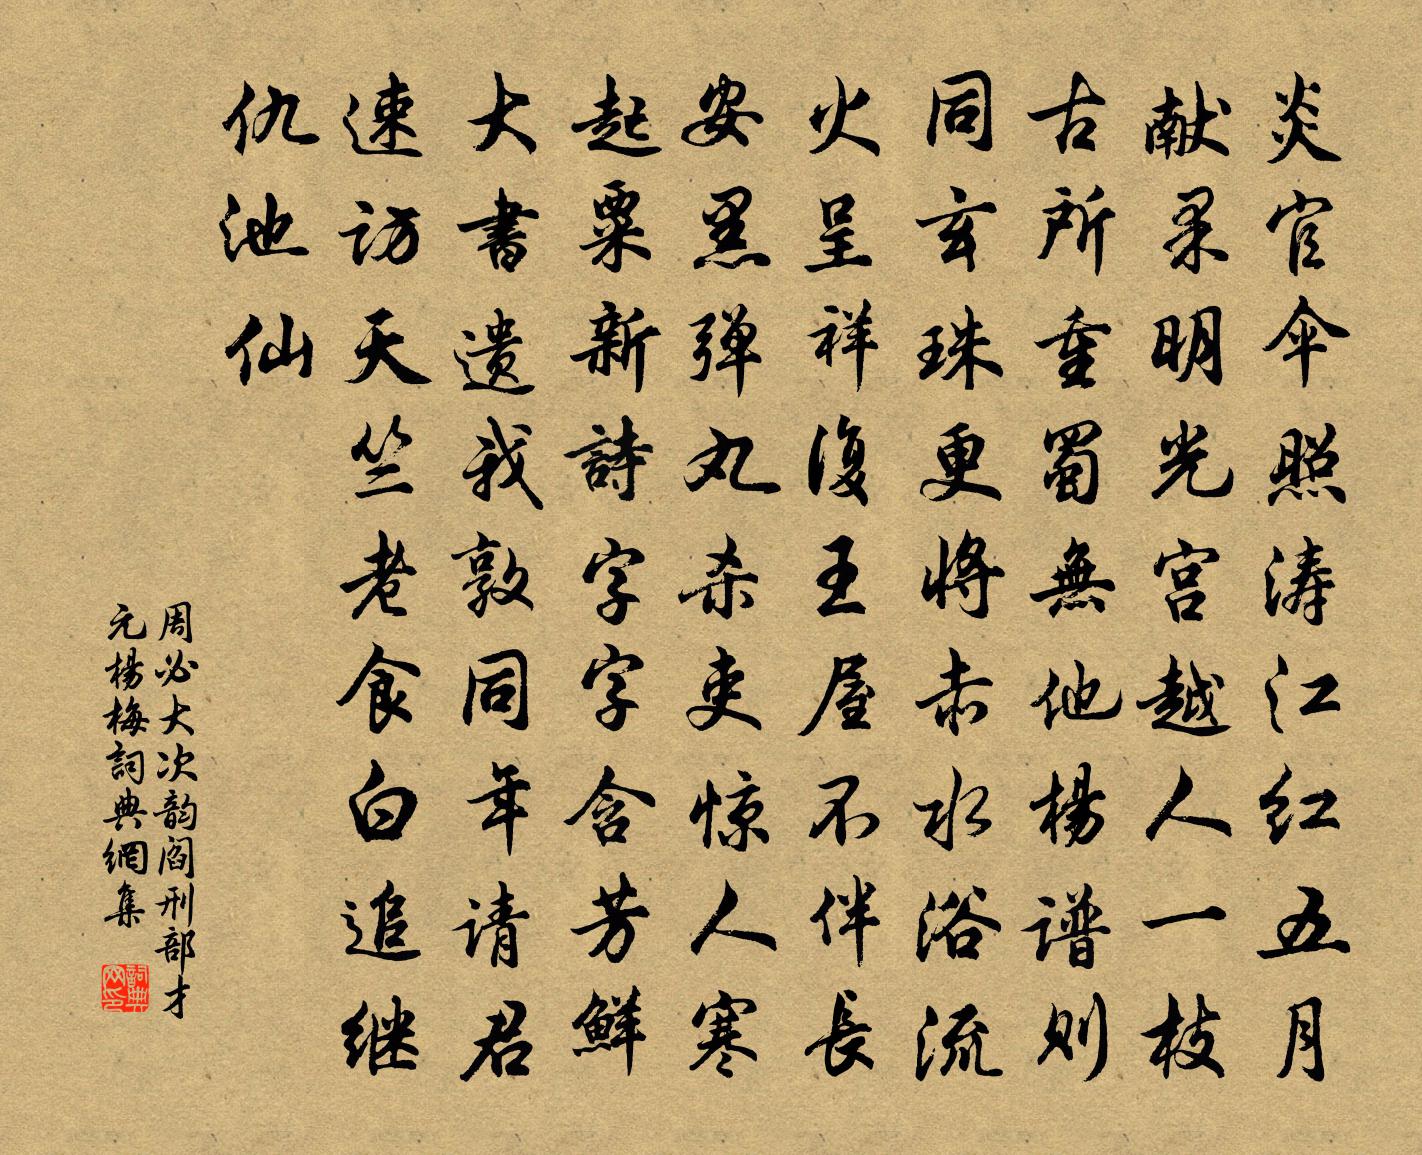 炎官伞照涛江红五月
献果明光宫越人一枝
古所重蜀無他楊谱则
同玄珠更将赤水浴流
火呈祥復王屋不伴長
安黑弹丸杀吏惊人寒
起粟新詩字字含芳鮮
大書遗我敦同年请君
速访天竺老食白追继
仇池仙
周必大次韵阎刑部才
元楊梅詞典網集
詞典网印